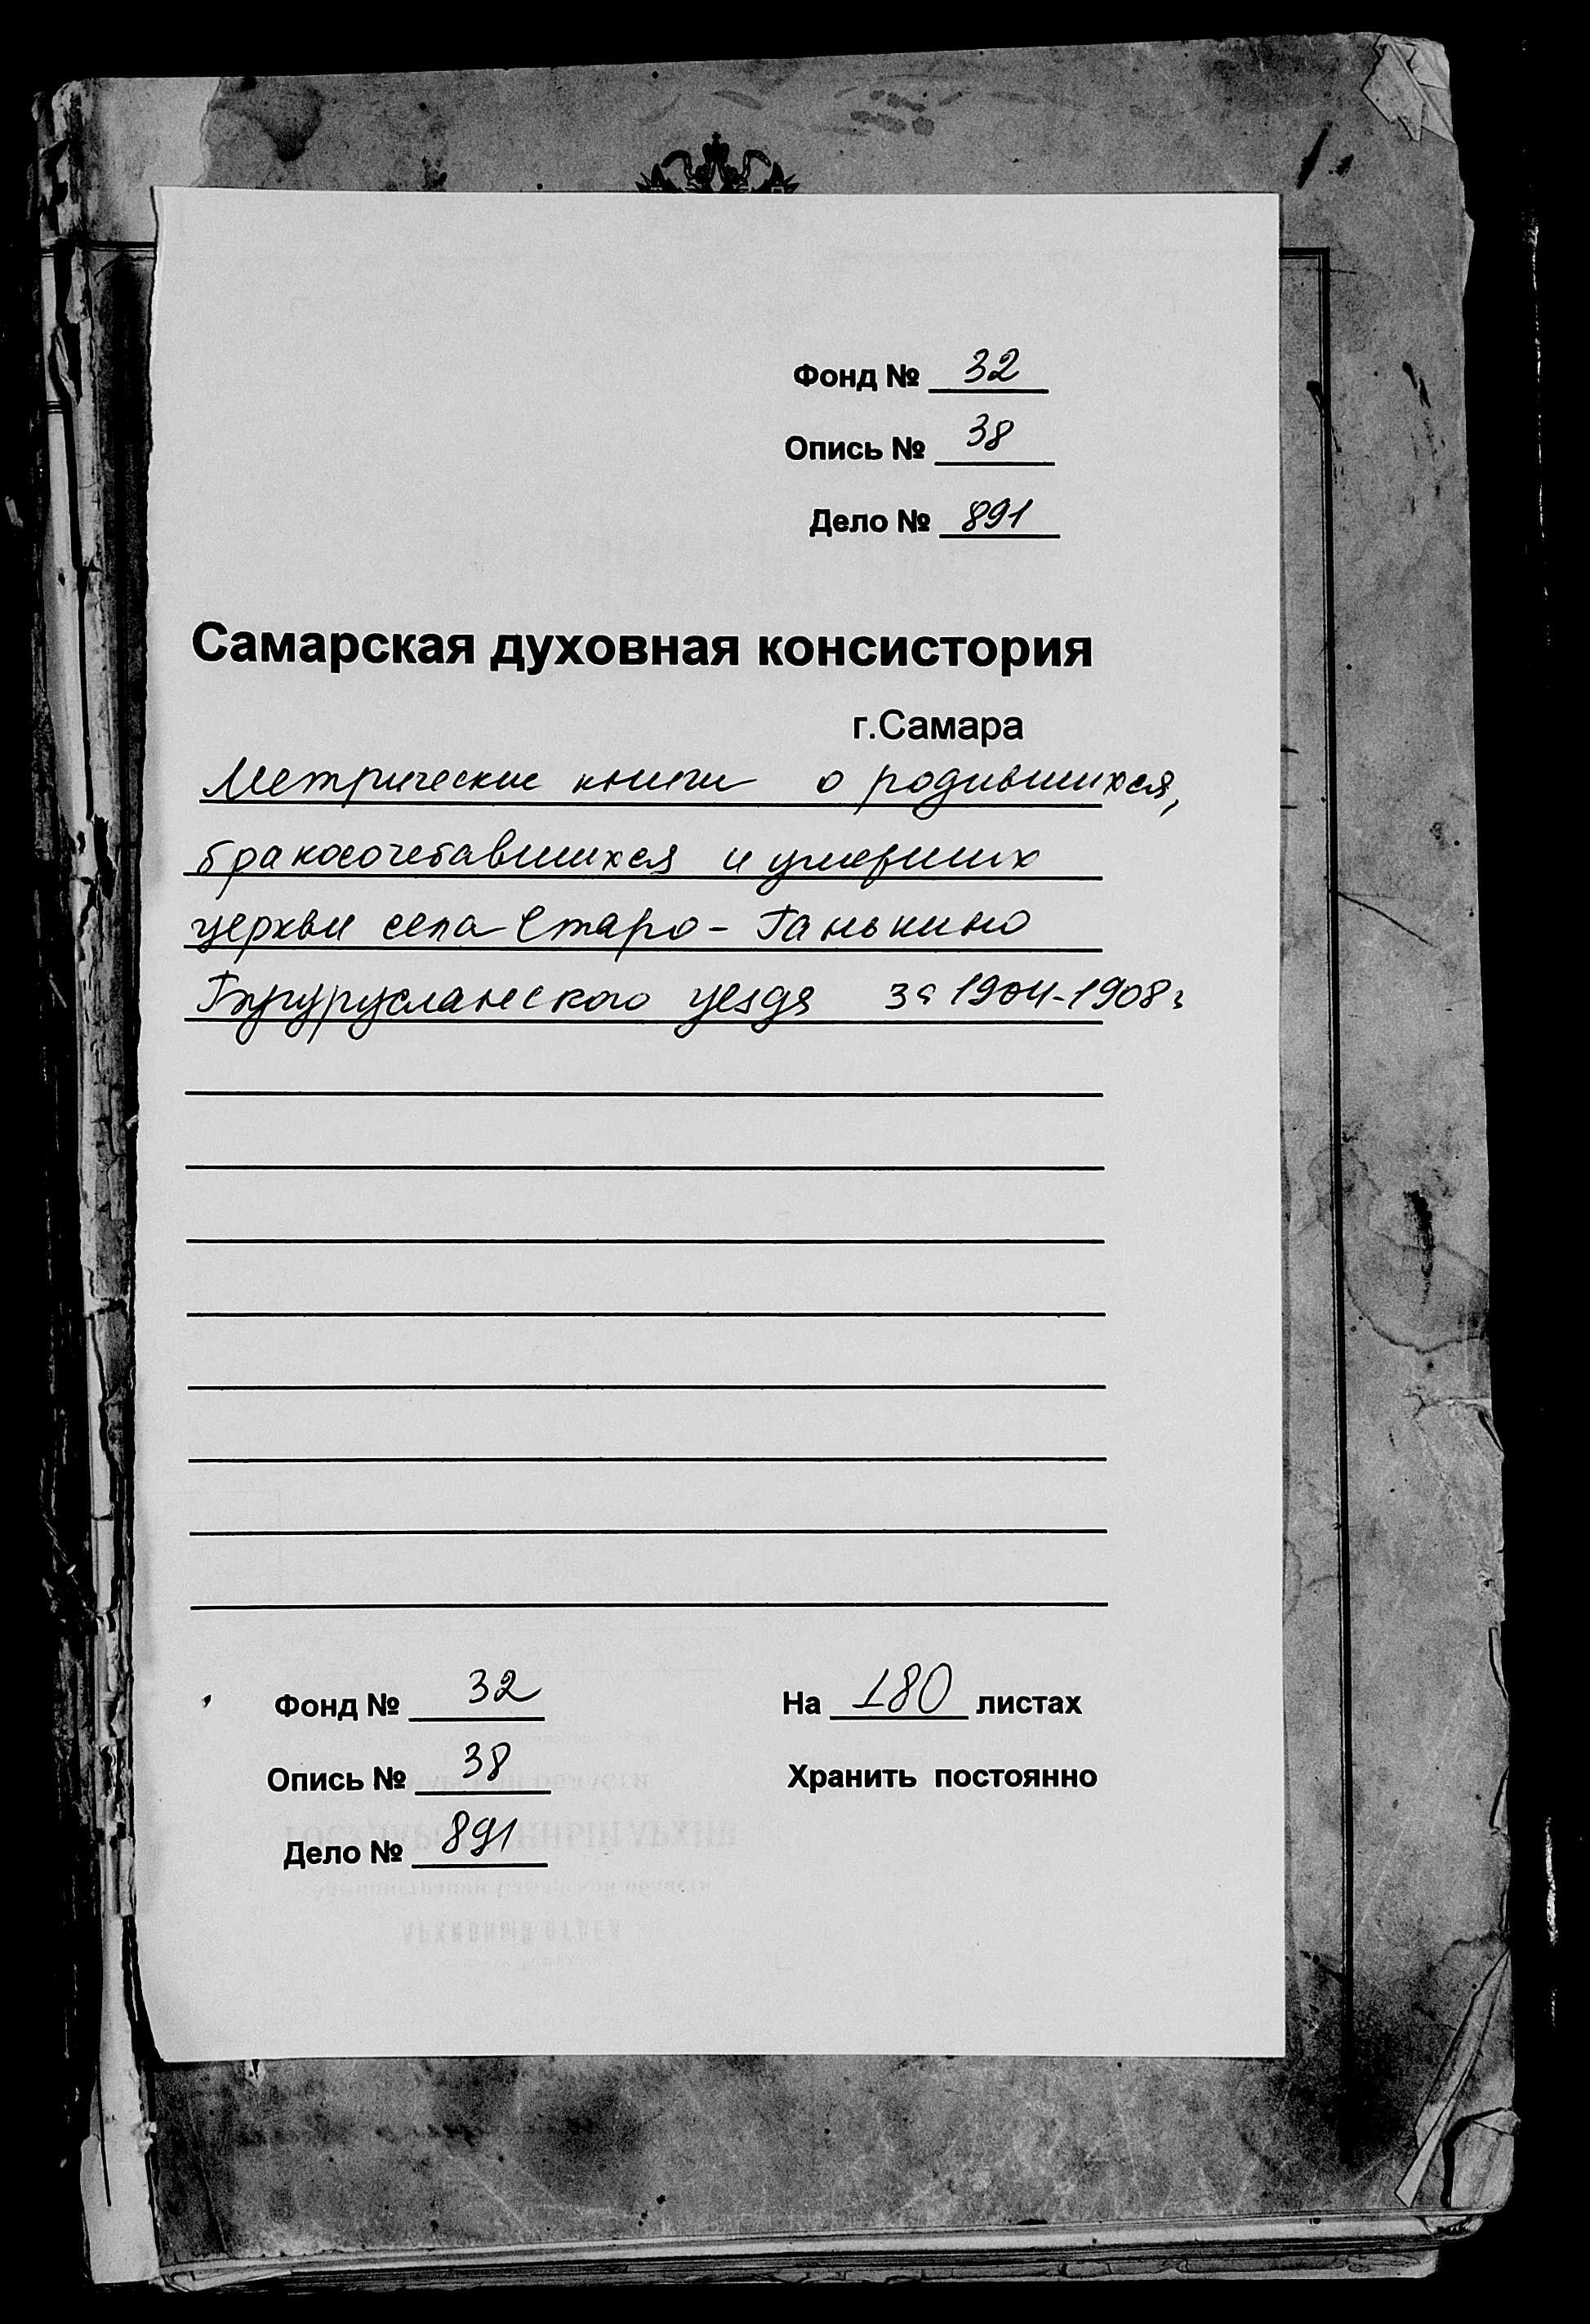 Фонд № 32
Опись № 38
Дело № 891
Самарская духовная консистория
г.Самара
Метрические книги о родившихся,
бракосочетавшихся и умерших
церкви села Старо-Ганькино
Бугурусланского уезда за 1904-1908 г
Фонд № 32
На 180 листах
Опись № 38
Хранить постоянно
Дело № 891